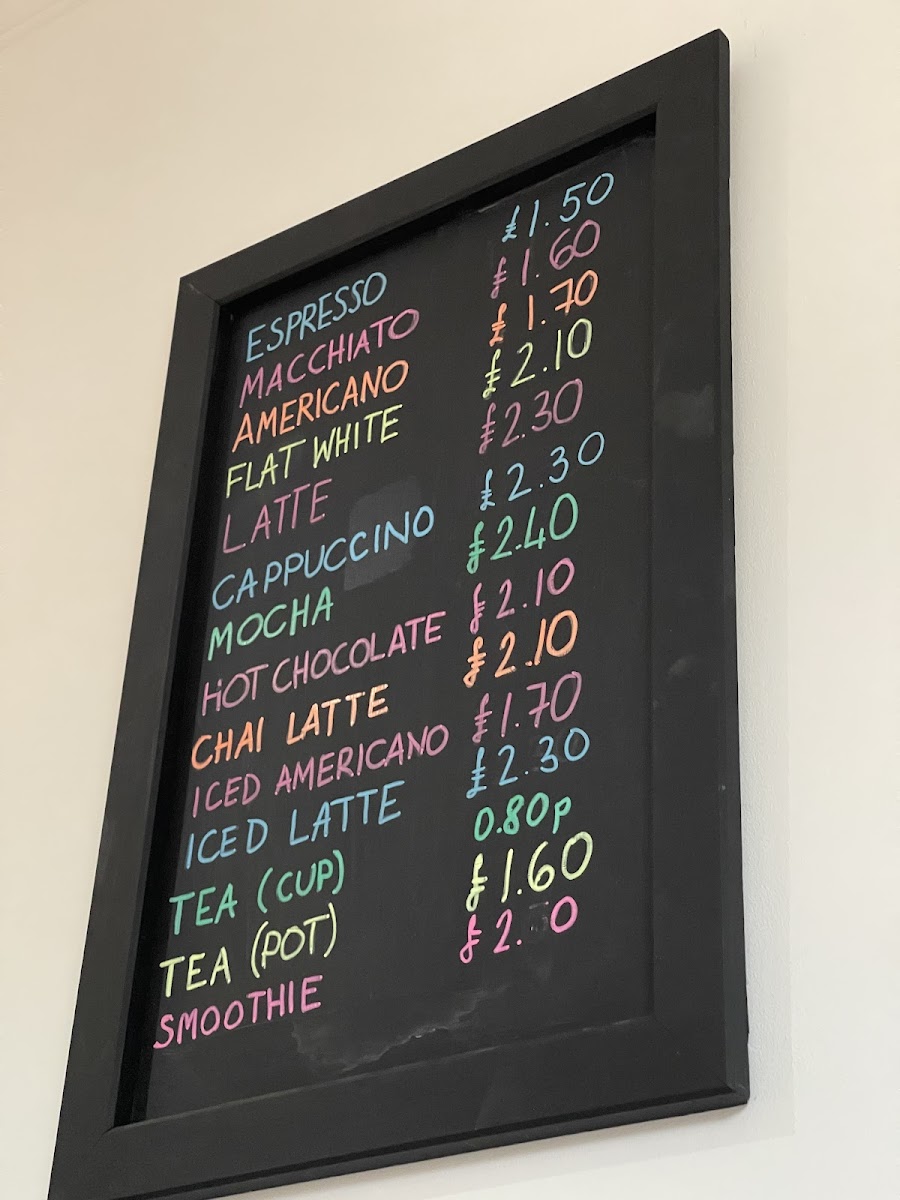 ESPRESSO £1.50
MACCHIATO £1.60
AMERICANO £1.70
FLAT WHITE £2.10
LATTE £2.30
CAPPUCCINO £2.30
MOCHA £2.40
HOT CHOCOLATE £2.10
CHAI LATTE £2.10
ICED AMERICANO £1.70
ICED LATTE £2.30
TEA (CUP) 0.80p
TEA (POT) £1.60
SMOOTHIE